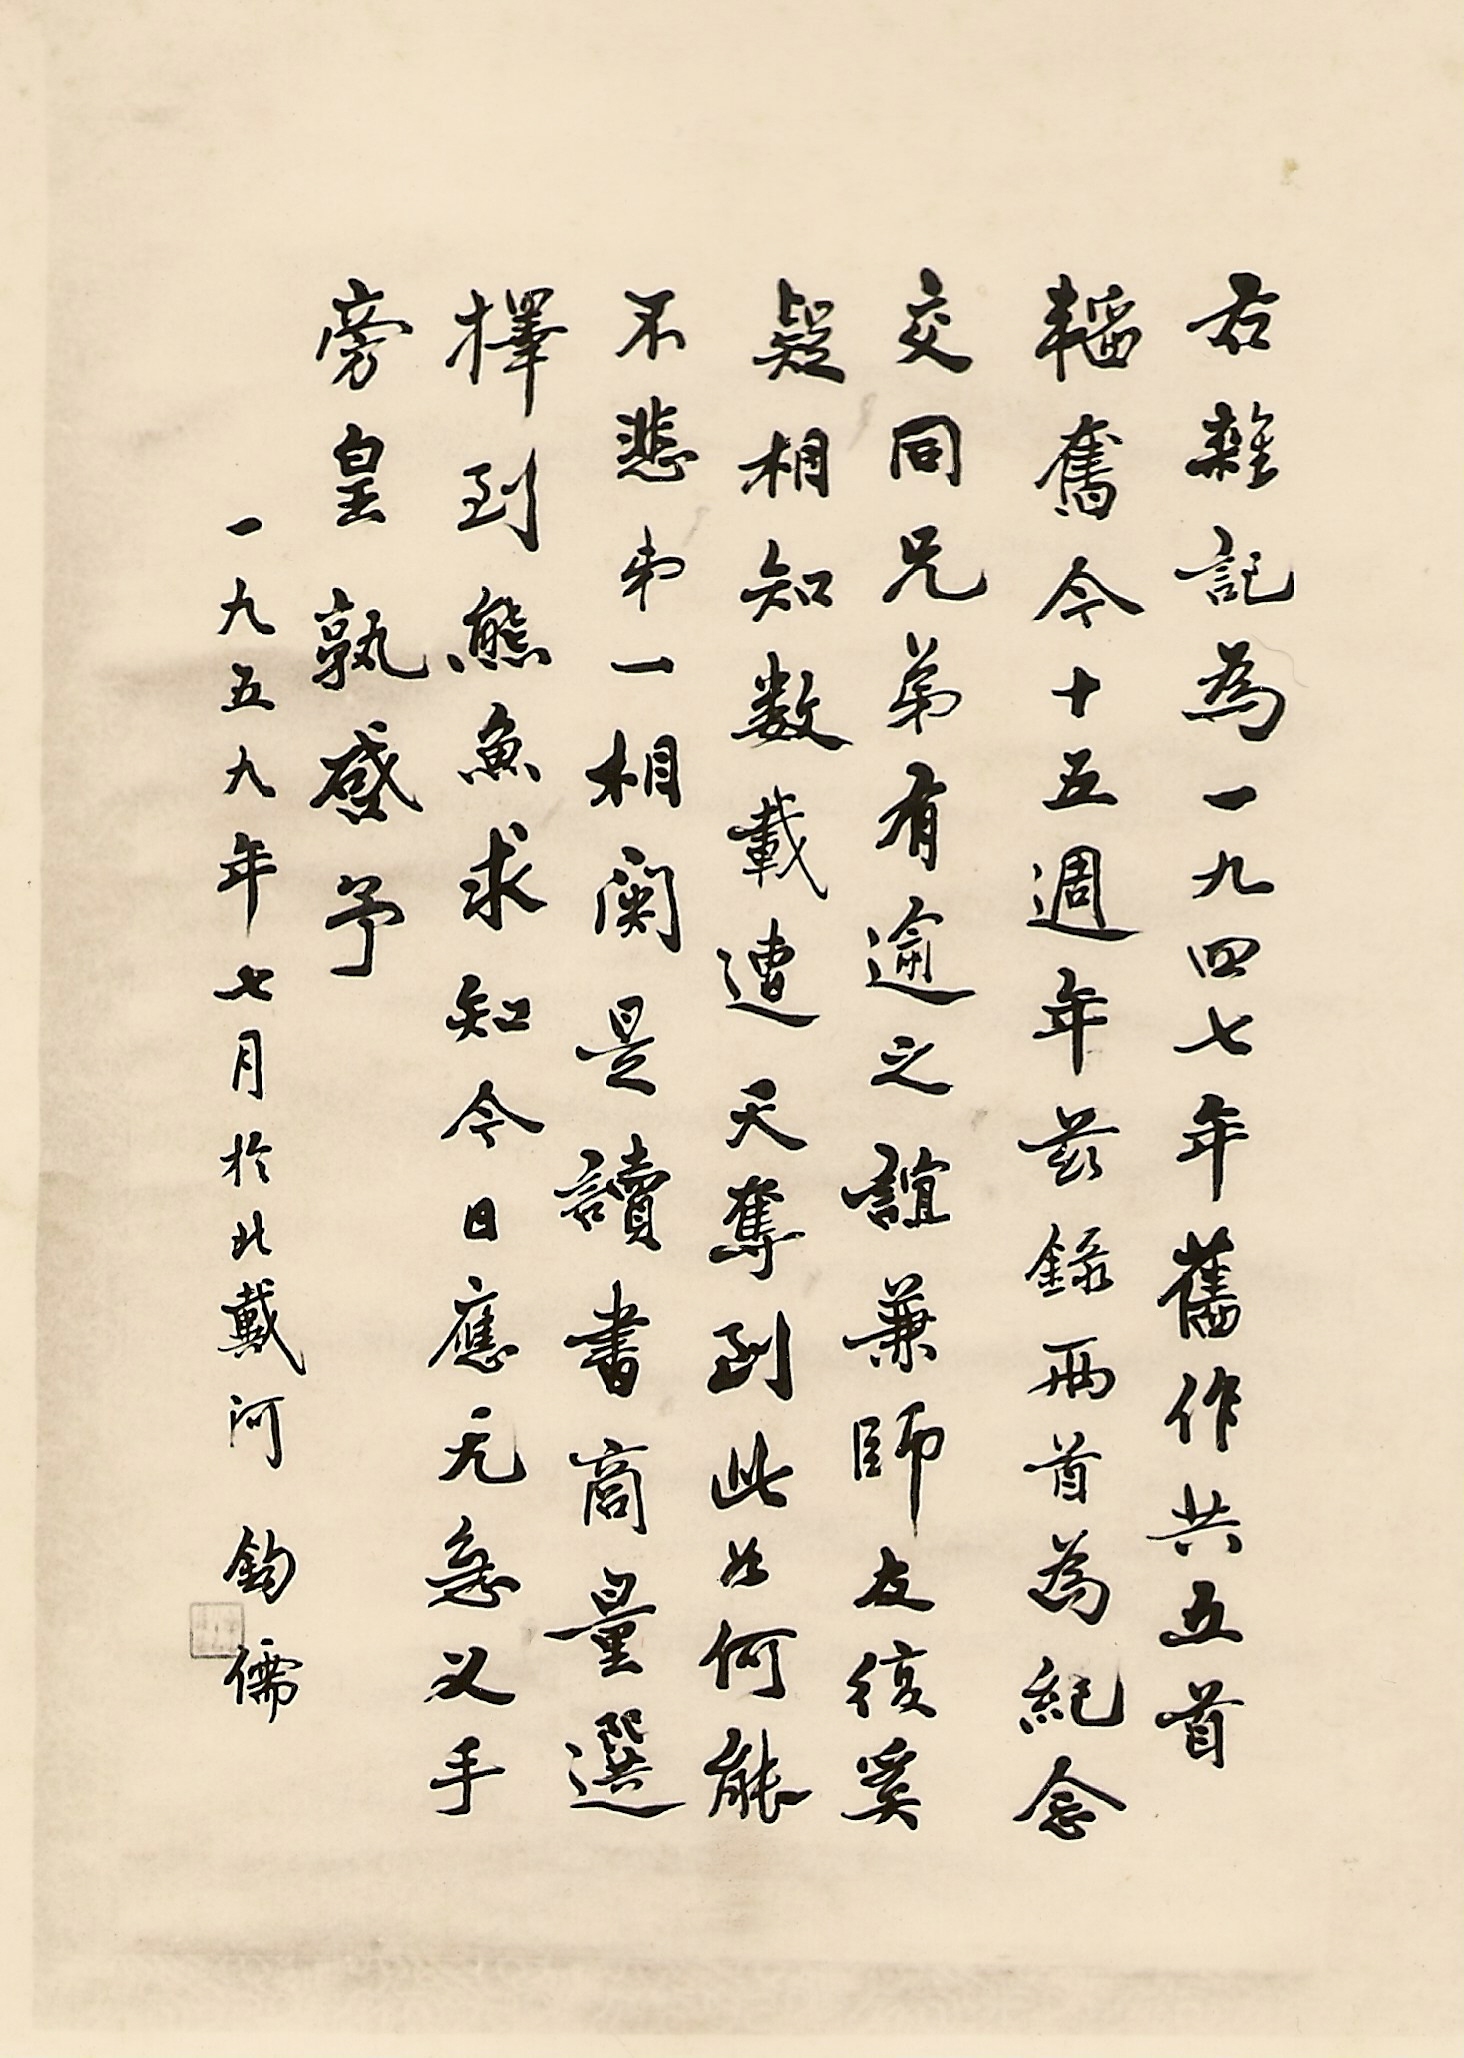 右雜記為一九四七年舊作共五首
韜奮今十五週年茲錄兩首為紀念
交同兄弟有逾之誼兼師友復奚
疑相知數載遭天奪到此如何能
不悲弟一相関是讀書商量選
擇到熊魚求知今日應无急义手
旁皇孰感予
一九五九年七月於北戴河 鈞儒